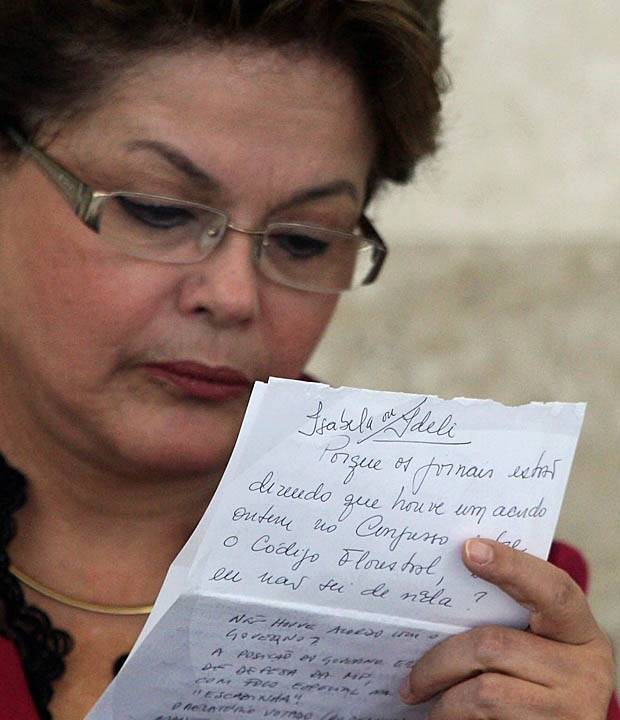 Isabela ou Ideli
Porque os jornais estão
dizendo que houve um acordo
ontem no Congresso sobre
o Código Florestal,
eu não sei de nada?
NÃO HOUVE ACORDO COM O
GOVERNO!
A POSIÇÃO DO GOVERNO E
DE DEFESA DA MP
COM FOCO ESPECIAL NA
"ESCADINHA"